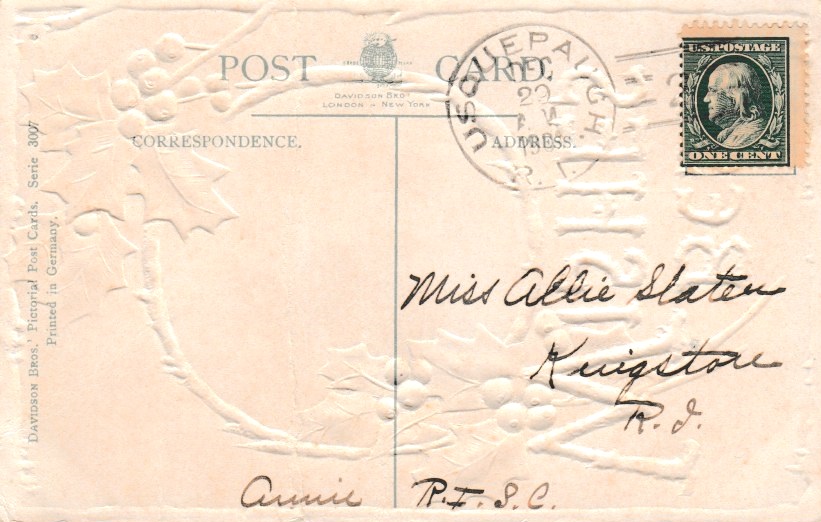 POST CARD.
DAVIDSON BROS
LONDON & NEW YORK
CORRESPONDENCE.
ADDRESS.
USQUEPAUGH.
DEC
29
R. I.
U.S. POSTAGE
ONE CENT
DAVIDSON BROS.' Pictorial Post Cards. Serie 3007
Printed in Germany.
Miss Allie Slater
Kingston
R. I.
Annie R. I. S. C.